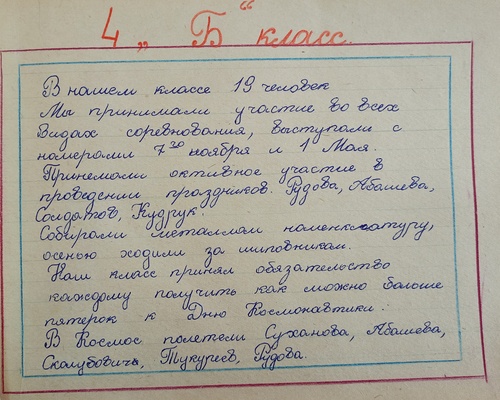 4 „Б“ класс.
В нашем классе 19 человек
Мы принимали участие во всех
видах соревнования, выступали с
номерами 7го ноября и 1 Мая.
Принемали активное участие в
проведении праздников. Рудова, Абашева,
Солдатов, Кудрук.
Собирали металлам
осенью ходили за шиповником.
Наш класс принял обязательство
каждому получить как можно больше
пятерок к Дню Космонавтики.
В Космос полетели Суханова, Абашева,
Скалубович, Тукуреев, Рудова.